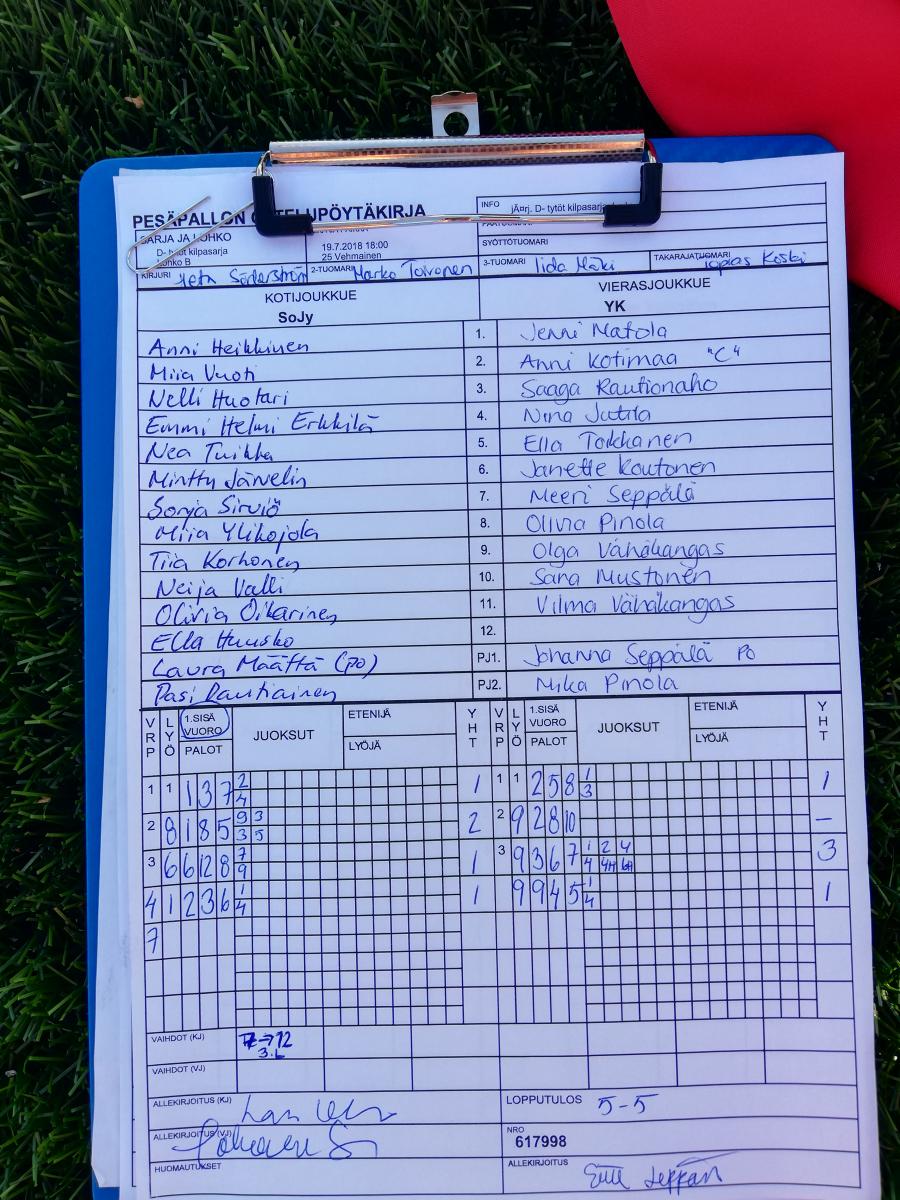 PESÄPALLON O TELUPÖYTÄKIRJA
INFO jÄ¤rj. D- tytöt kilpasarja
SARJA JA LOHKO
D- tytöt kilpasarja
Lohko B
19.7.2018 18:00
25 Vehmainen
SYÖTTÖTUOMARI
KIRJURI Söderström
2-TUOMARI Marko Toivonen
3-TUOMARI Iida Mäki
TAKARAJATUOMARI Topias Koski
KOTIJOUKKUE
SoJy
VIERASJOUKKUE
YK
Anni Heikkinen 1. Jenni Matola
Miia Vuoti 2. Anni Kotimaa "C"
Nelli Huotari 3. Saaga Rautionaho
Emmi Helmi Erkkilä 4. Nina Jutila
Nea Tuikka 5. Ella Torkkanen
Minttu Järvelin 6. Janette Koutonen
Sonja Sirviö 7. Meeri Seppälä
Miia Ylikojola 8. Olivia Pinola
Tiia Korhonen 9. Olga Vähäkangas
Neija Valli 10. Sara Mustonen
Olivia Oikarinen 11. Vilma Vähäkangas
Ella Huusko 12.
Laura Määttä (po) PJ1. Johanna Seppälä PO
Pasi Rautiainen PJ2. Mika Pinola
VRP LYÖ 1.SISÄ VUORO PALOT JUOKSUT ETENIJÄ LYÖJÄ YHT VRP LYÖ 1.SISÄ VUORO PALOT JUOKSUT ETENIJÄ LYÖJÄ YHT
1 1 1 3 7 2/4 1 1 1 2 5 8 1/3 1
2 8 1 8 5 9/3 3/5 2 2 9 2 8 10 –
3 6 6 12 8 7/9 1 3 9 3 6 7 1/4 2/4H 4/LH 3
4 1 2 3 6 1/4 1 9 9 4 5 1/4 1
7
VAIHDOT (KJ) 7→12
3.L
VAIHDOT (VJ)
ALLEKIRJOITUS (KJ)
LOPPUTULOS 5-5
ALLEKIRJOITUS (VJ)
NRO
617998
HUOMAUTUKSET
ALLEKIRJOITUS